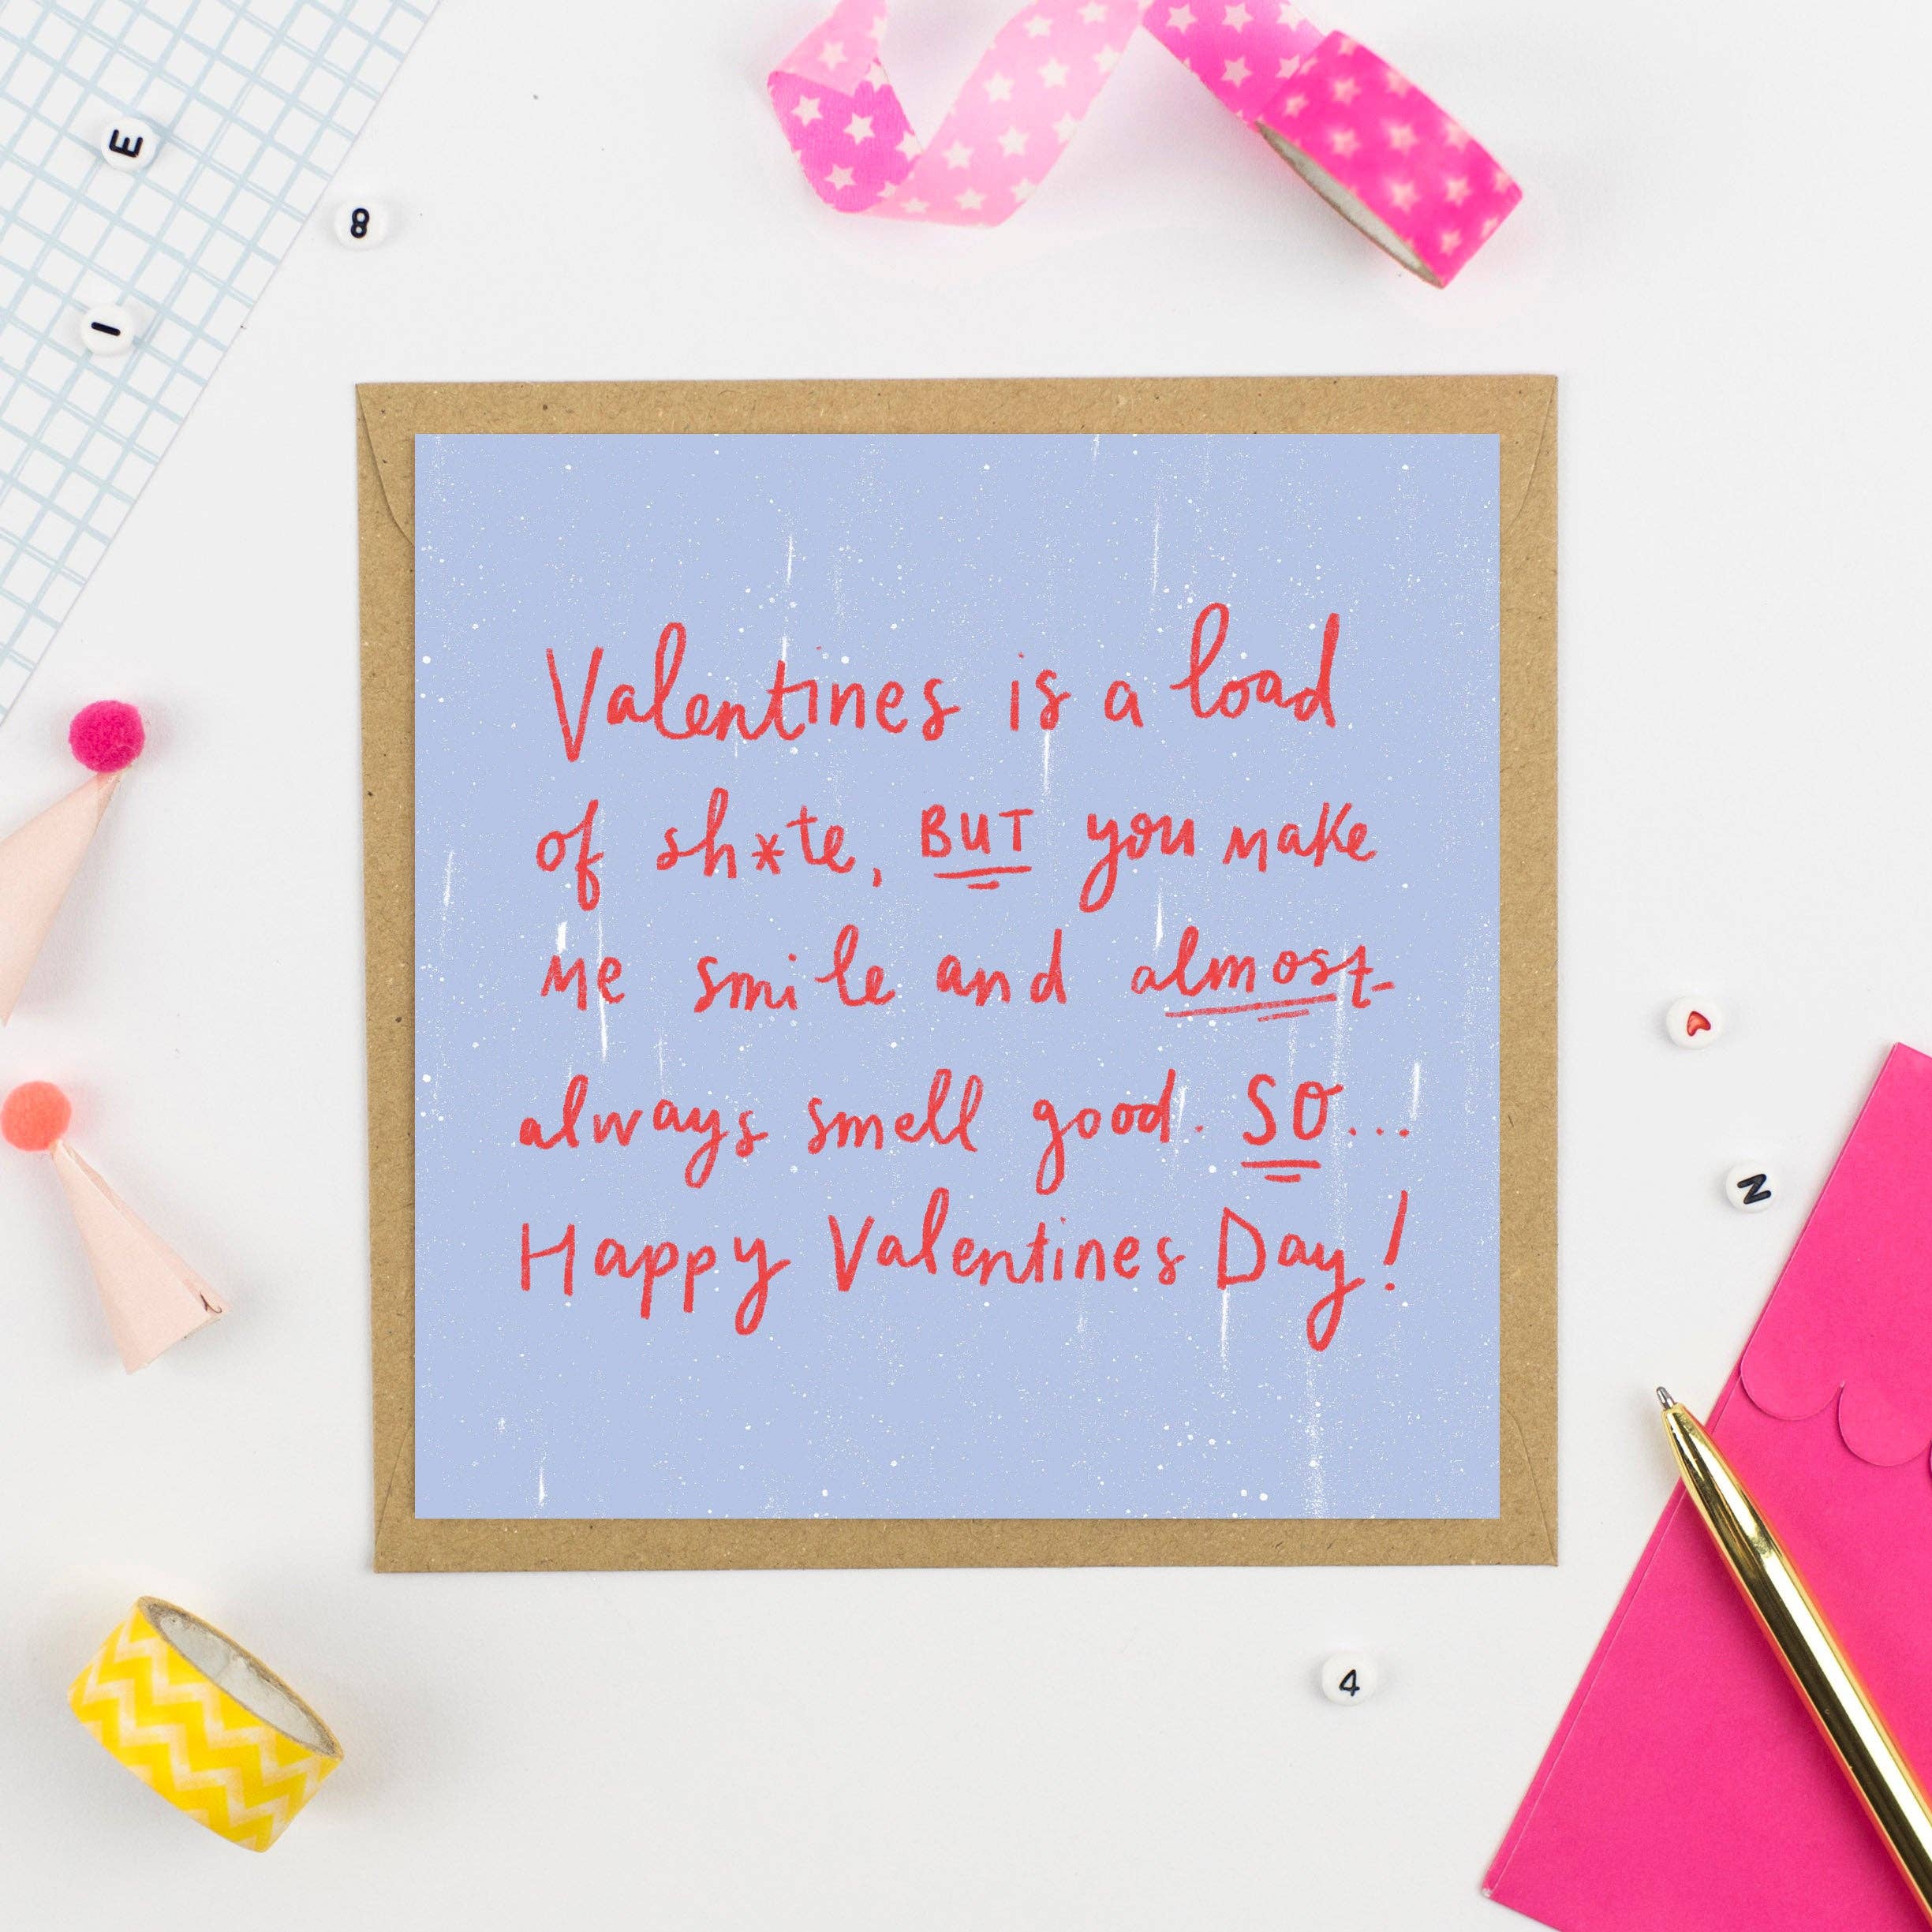 E
8
I
Valentines is a load
of sh*te, BUT you make
me smile and almost
always smell good. SO...
Happy Valentines Day!
N
4